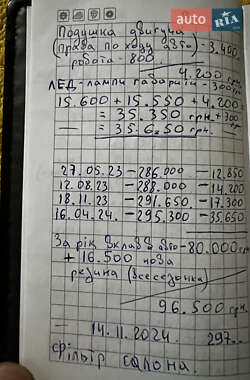 AUTO RIA
Подушка двигуна
(права по ходу авто) - 3.400
робота - 800
4.200 грн.
ЛЕД - лампи габарити - 300 грн
15.600 + 15.550 + 4.200
= 35.350 грн. + 300 грн
= 35.650 грн.
27.05.23 - 286.000 - 12.850
12.08.23 - 288.000 - 14.200
18.11.23 - 291.650 - 17.300
16.04.24. - 295.300 - 35.650
За рік вклав в авто - 80.000 грн
+ 16.500 нова
резина (всесезонка)
96.500 грн.
14.11.2024. 297
фільтр салона.